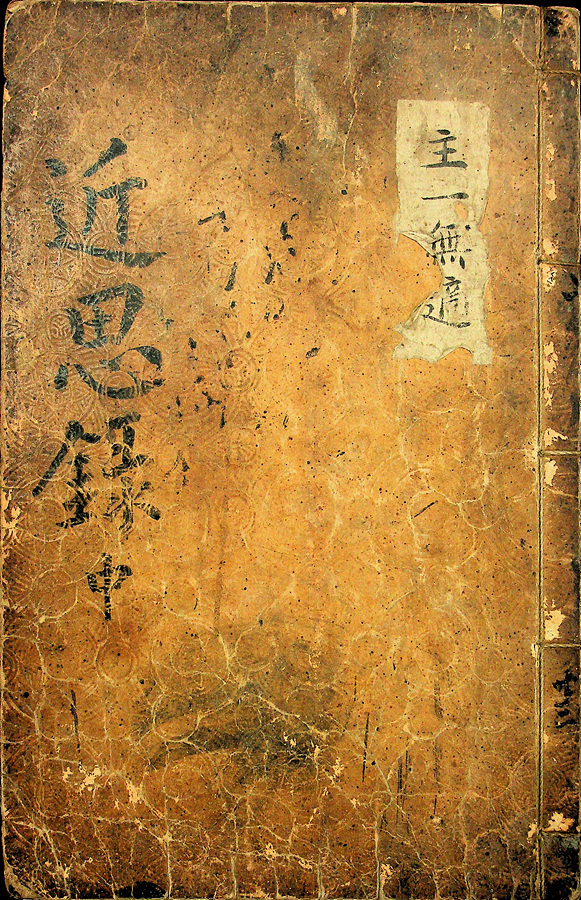 主一無適
近思錄 中